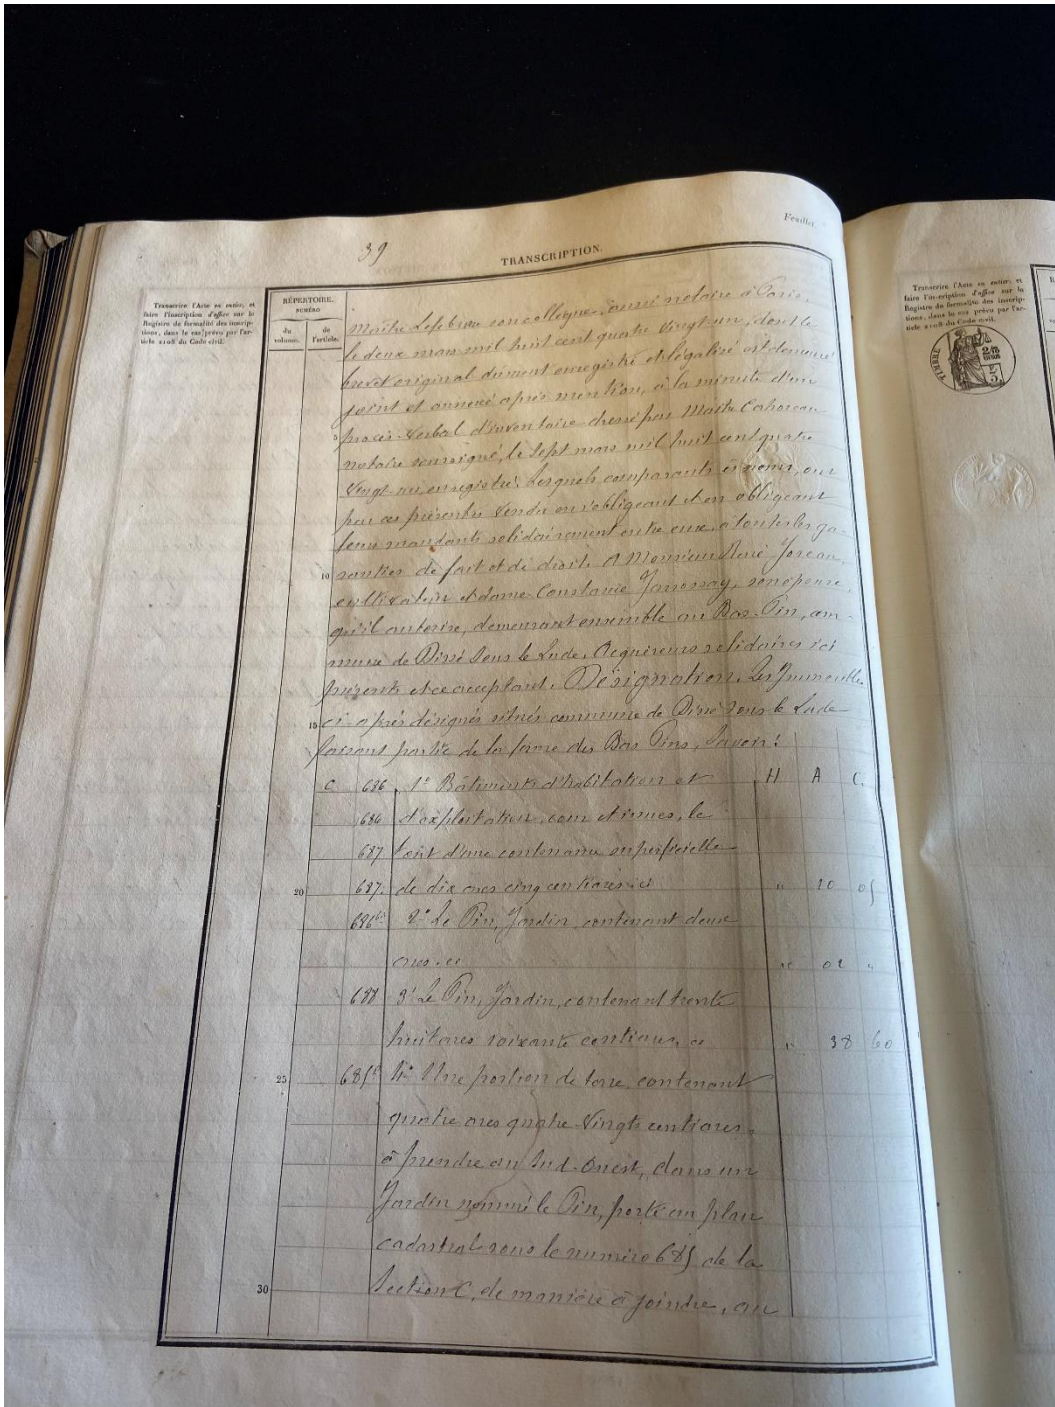 Feuillet
39
TRANSCRIPTION.
Transcrire l'Acte en entier, et
faire l'inscription d'office sur le
Registre de formalité des inscrip-
tions, dans le cas prévu par l'ar-
ticle 2108 du Code civil.
RÉPERTOIRE.
NUMÉRO
du volume.
de l'article.
Maître Lefebvre son collègue, aussi notaire à Paris,
le deux mars mil huit cent quatre vingt un, dont le
brevet original dûment enregistré et légalisé est demeuré
joint et annexé après mention, à la minute d'un
5 procès-verbal d'inventaire dressé par Maître Cahoreau
notaire soussigné, le sept mars mil huit cent quatre
vingt un, enregistré. Lesquels comparants ès noms, ont
par ces présentes vendu en s'obligeant et en obligeant
leurs mandants solidairement entre eux, à toutes les ga-
10 ranties de fait et de droit. A Monsieur René Joreau,
cultivateur et dame Constance Janossay, son épouse,
qu'il autorise, demeurant ensemble au Bas-Pin, com-
mune de Dissé sous le Lude. Acquéreurs solidaires ici
présents et ce acceptant. Désignation. Les Immeubles
15 ci-après désignés situés commune de Dissé sous le Lude
faisant partie de la ferme des Bas Pins, Savoir:
C 686 1° Bâtiments d'habitation et H A C.
686 d'exploitation, cour et issues, le
687 tout d'une contenance superficielle
20 687. de dix ares cinq centiares ci " 10 05
686bis 2° Le Pin, Jardin, contenant deux
ares. ci " 02 "
688 3° Le Pin, Jardin, contenant trente
huit ares soixante centiares, ci " 38 60
25 685p 4° Une portion de terre, contenant
quatre ares quatre vingts centiares
à prendre au Sud-Ouest, dans un
Jardin nommé le Pin, porté au plan
cadastral sous le numéro 685 de la
30 Section C, de manière à joindre, au
Transcrire l'Acte en entier, et
faire l'inscription d'office sur le
Registre de formalité des inscrip-
tions, dans le cas prévu par l'ar-
ticle 2108 du Code civil.
TIMBRE